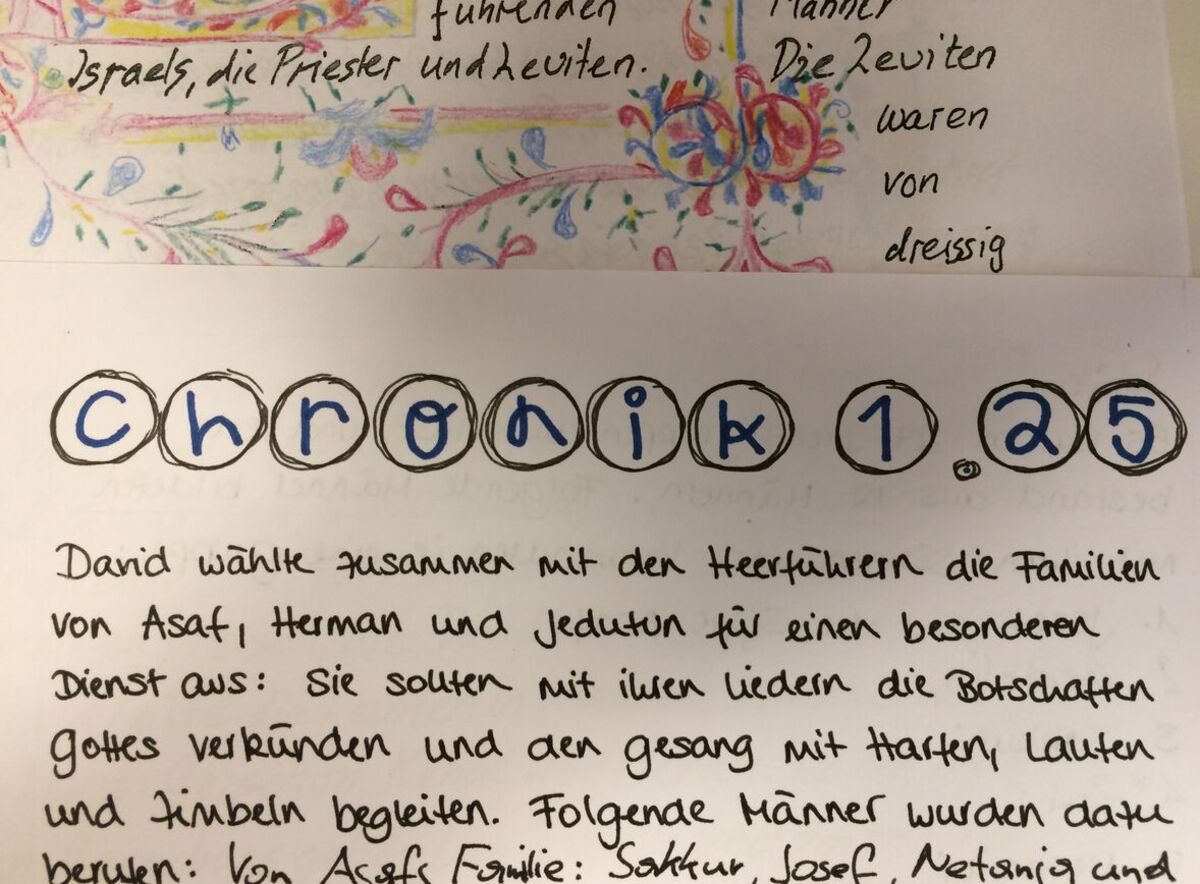 führenden
Israels, die Priester und Leviten.
Männer
Die Leviten
waren
von
dreissig
Chronik 1.25
David wählte zusammen mit den Heerführern die Familien
von Asaf, Herman und Jedutun für einen besonderen
Dienst aus: Sie sollten mit ihren Liedern die Botschaften
Gottes verkünden und den Gesang mit Harfen, Lauten
und Zimbeln begleiten. Folgende Männer wurden dazu
berufen: Von Asafs Familie: Sakkur, Josef, Netanja und